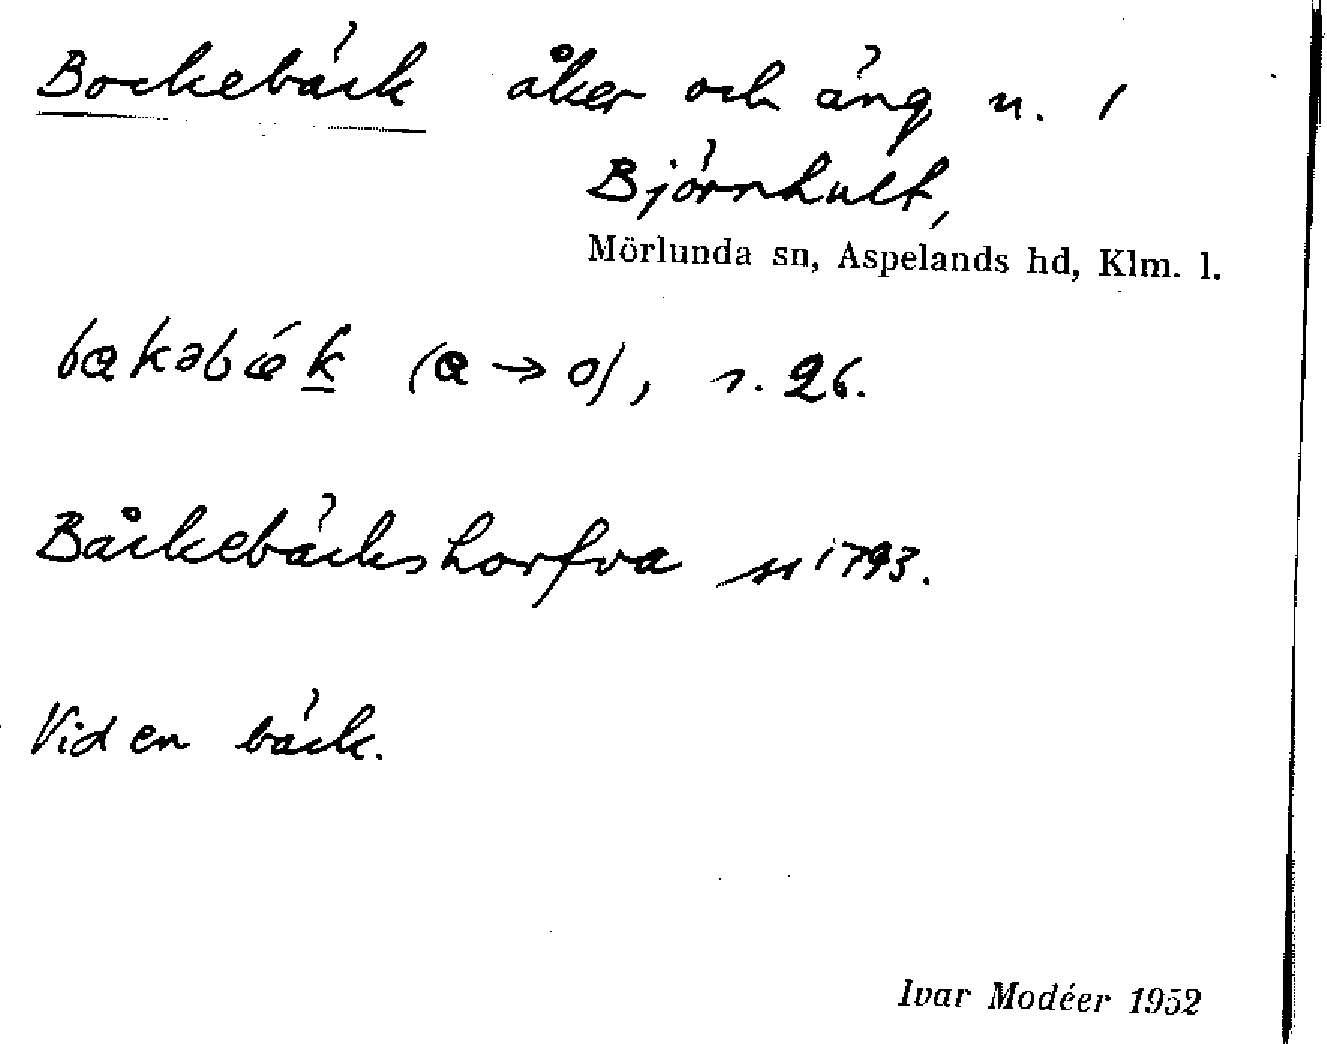 Bockebäck åker och äng n. 1
Björnhult,
Mörlunda sn, Aspelands hd, Klm. l.
bakəbæk (a → o), r. 26.
Båckebäckshorfva 1793.
Vid en bäck.
Ivar Modéer 1952